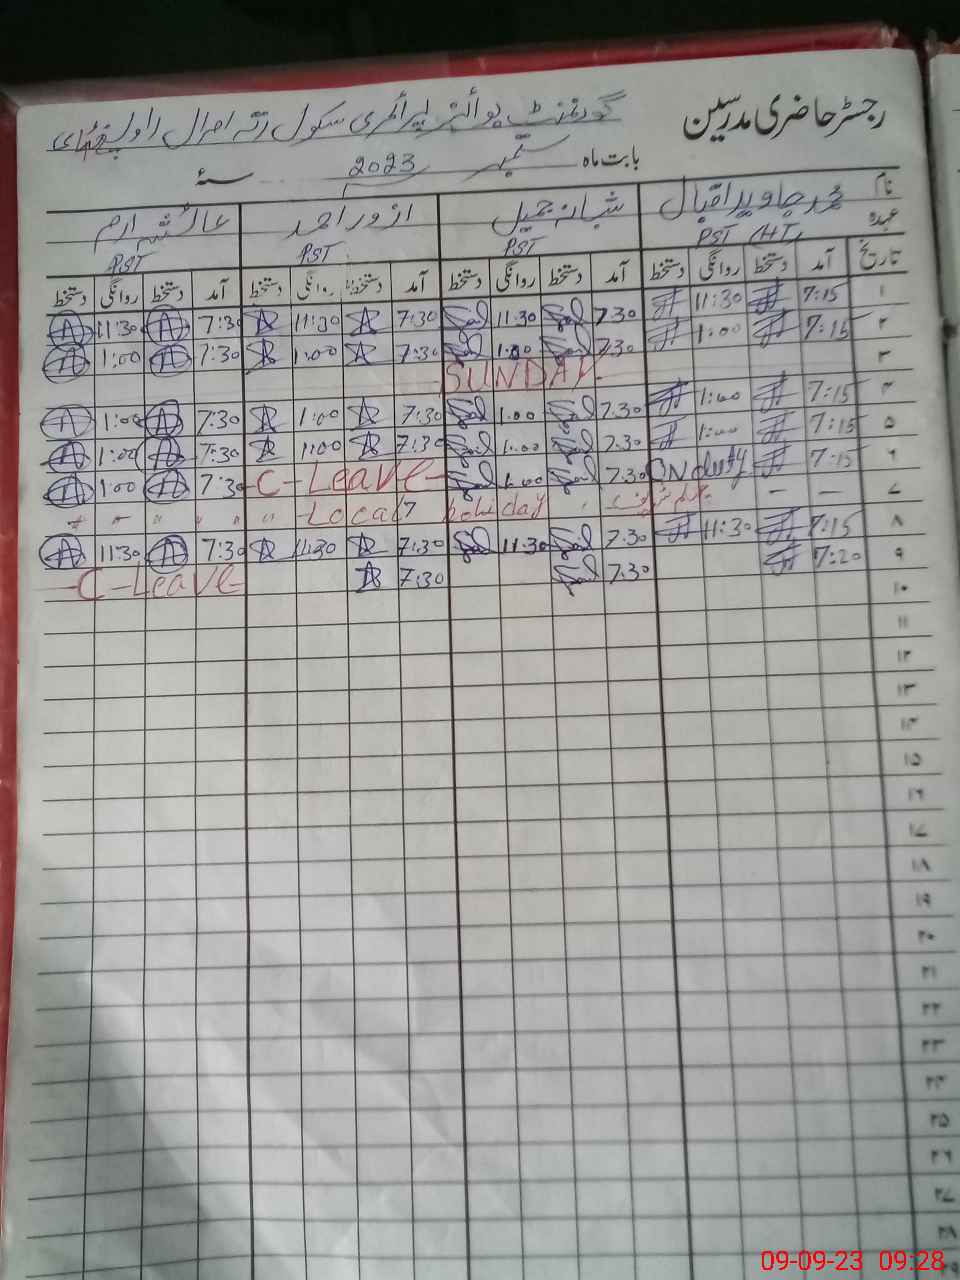 رجسٹر حاضری مدرسین
گورنمنٹ بوائز پرائمری سکول رتہ امرال راولپنڈی
بابت ماہ ستمبر 2023 سنہ
نام محمد جاوید اقبال شبانہ جمیل ازور احمد عائشہ ارم
عہدہ PST (HT) PST PST PST
تاریخ آمد دستخط روانگی دستخط آمد دستخط روانگی دستخط آمد دستخط روانگی دستخط آمد دستخط روانگی دستخط
۱ 7:15 11:30 7.30 11:30 7:30 11:30 7:30 11:30
۲ 7:15 1:00 7.30 1:00 7:30 1:00 7:30 1:00
۳ SUNDAY
۴ 7:15 1:00 7.30 1:00 7:30 1:00 7:30 1:00
۵ 7:15 1:00 7.30 1:00 7:30 1:00 7:30 1:00
۶ 7:15 ON duty 7.30 1:00 C-Leave 7:30 1:00
۷ — — چہلم شریف Local holiday " " " " "
۸ 7:15 11:30 7.30 11:30 7:30 11:30 7:30 11:30
۹ 7:20 7.30 7:30 C-Leave
۱۰
۱۱
۱۲
۱۳
۱۴
۱۵
۱۶
۱۷
۱۸
۱۹
۲۰
۲۱
۲۲
۲۳
۲۴
۲۵
۲۶
۲۷
۲۸
۲۹
09-09-23 09:28